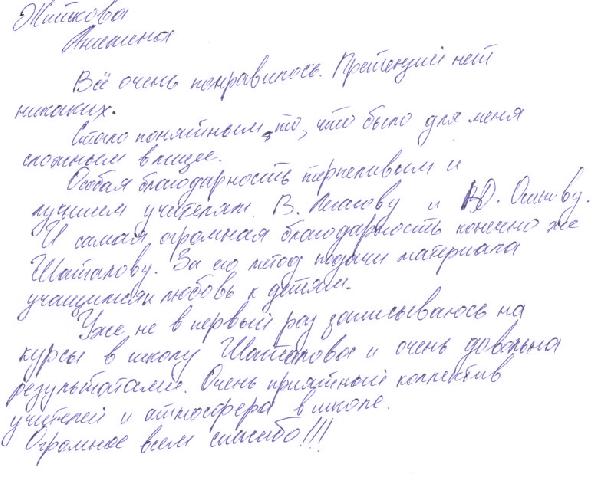 Житкова
Все очень понравилось. Претензий нет
никаких.
Стало понятным, то, что было для меня
сложным в лицее.
Особая благодарность терпеливым и
лучшим учителям В. и Ю.
И самая огромная благодарность конечно же
Шаталову. За его метод подачи материала
учащимся и любовь к детям.
Уже не в первый раз записываюсь на
курсы в школу Шаталова и очень довольна
результатами. Очень приятный коллектив
учителей и атмосфера в школе.
Огромное всем спасибо!!!